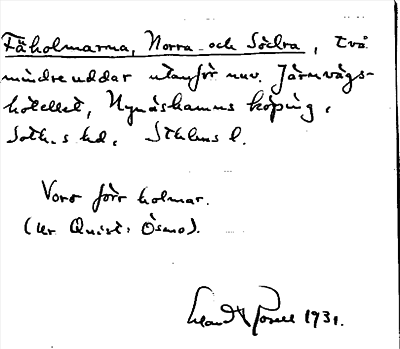 Fäholmarna, Norra och Södra, två
mindre uddar utanför nuv. Järnvägs-
hotellet, Nynäshamns köping,
Soth.s hd, Sthlms l.
Voro förr holmar.
(ur Quist: Ösmo).
1931.